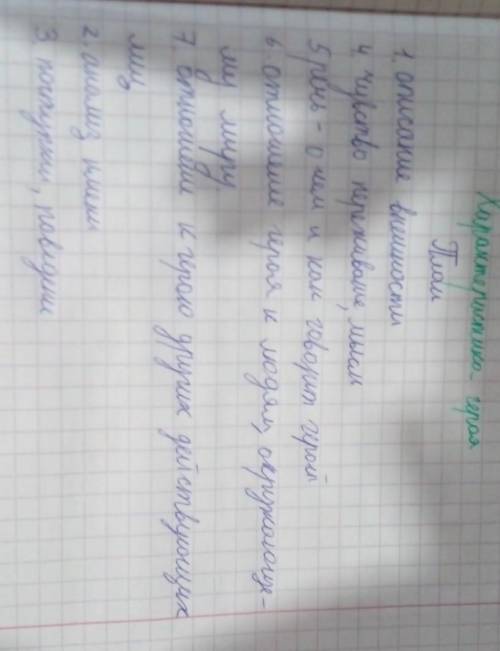 Характеристика героя
План
1. описание внешности
4. чувство переживание, мысли
5 речь - о чем и как говорит герой
6. отношение героя к людям, окружающе-
му миру
7. отношение к герою других действующих
лиц
2. анализ имени
3. поступки, поведение